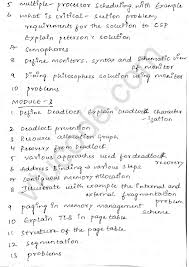 5 multiple-processor Scheduling with Example
6 what is critical-section problem,
requirements for the solution to CSP
Explain peterson's solution
7 Semaphores
8 Define monitors, syntax and Schematic view of monitor
9 Dining philosophers solution using monitor
10 problems
MODULE-3
1 Define Deadlock Explain Deadlock characterisation
2 Deadlock prevention
3 Resource allocation Graph
4 Recovery from Deadlock
5 Various approaches used for deadlock recovery
6 Address Binding a various steps
7 contiguous memory Allocation
8 Illustrate with example the internal and external fragmentation problem
9 paging in memory management scheme
10 Explain TLB in page table
11 structure of the page table
12 segmentation
13 problems